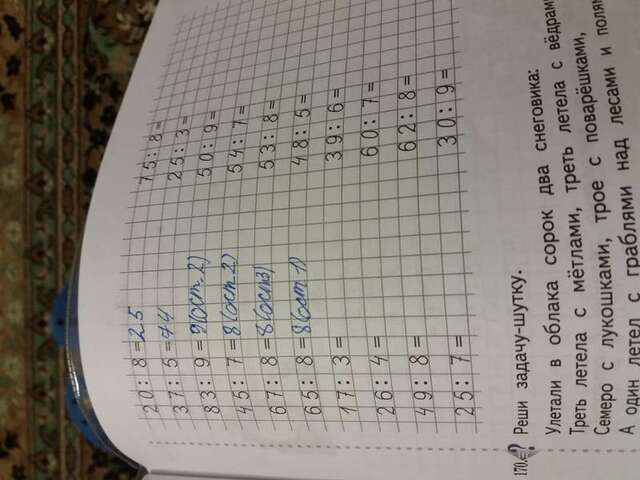 20 : 8 = 25
37 : 5 = 74
83 : 9 = 9(ост. 2)
45 : 7 = 8(ост 2)
67 : 8 = 8(ост3)
65 : 8 = 8(ост 1)
17 : 3 =
26 : 4 =
49 : 8 =
25 : 7 =
75 : 8 =
25 : 3 =
50 : 9 =
54 : 7 =
53 : 8 =
48 : 5 =
39 : 6 =
60 : 7 =
62 : 8 =
30 : 9 =
170. ? Реши задачу-шутку.
Улетали в облака сорок два снеговика:
Треть летела с мётлами, треть летела с вёдрами,
Семеро с лукошками, трое с поварёшками,
А один летел с граблями над лесами и